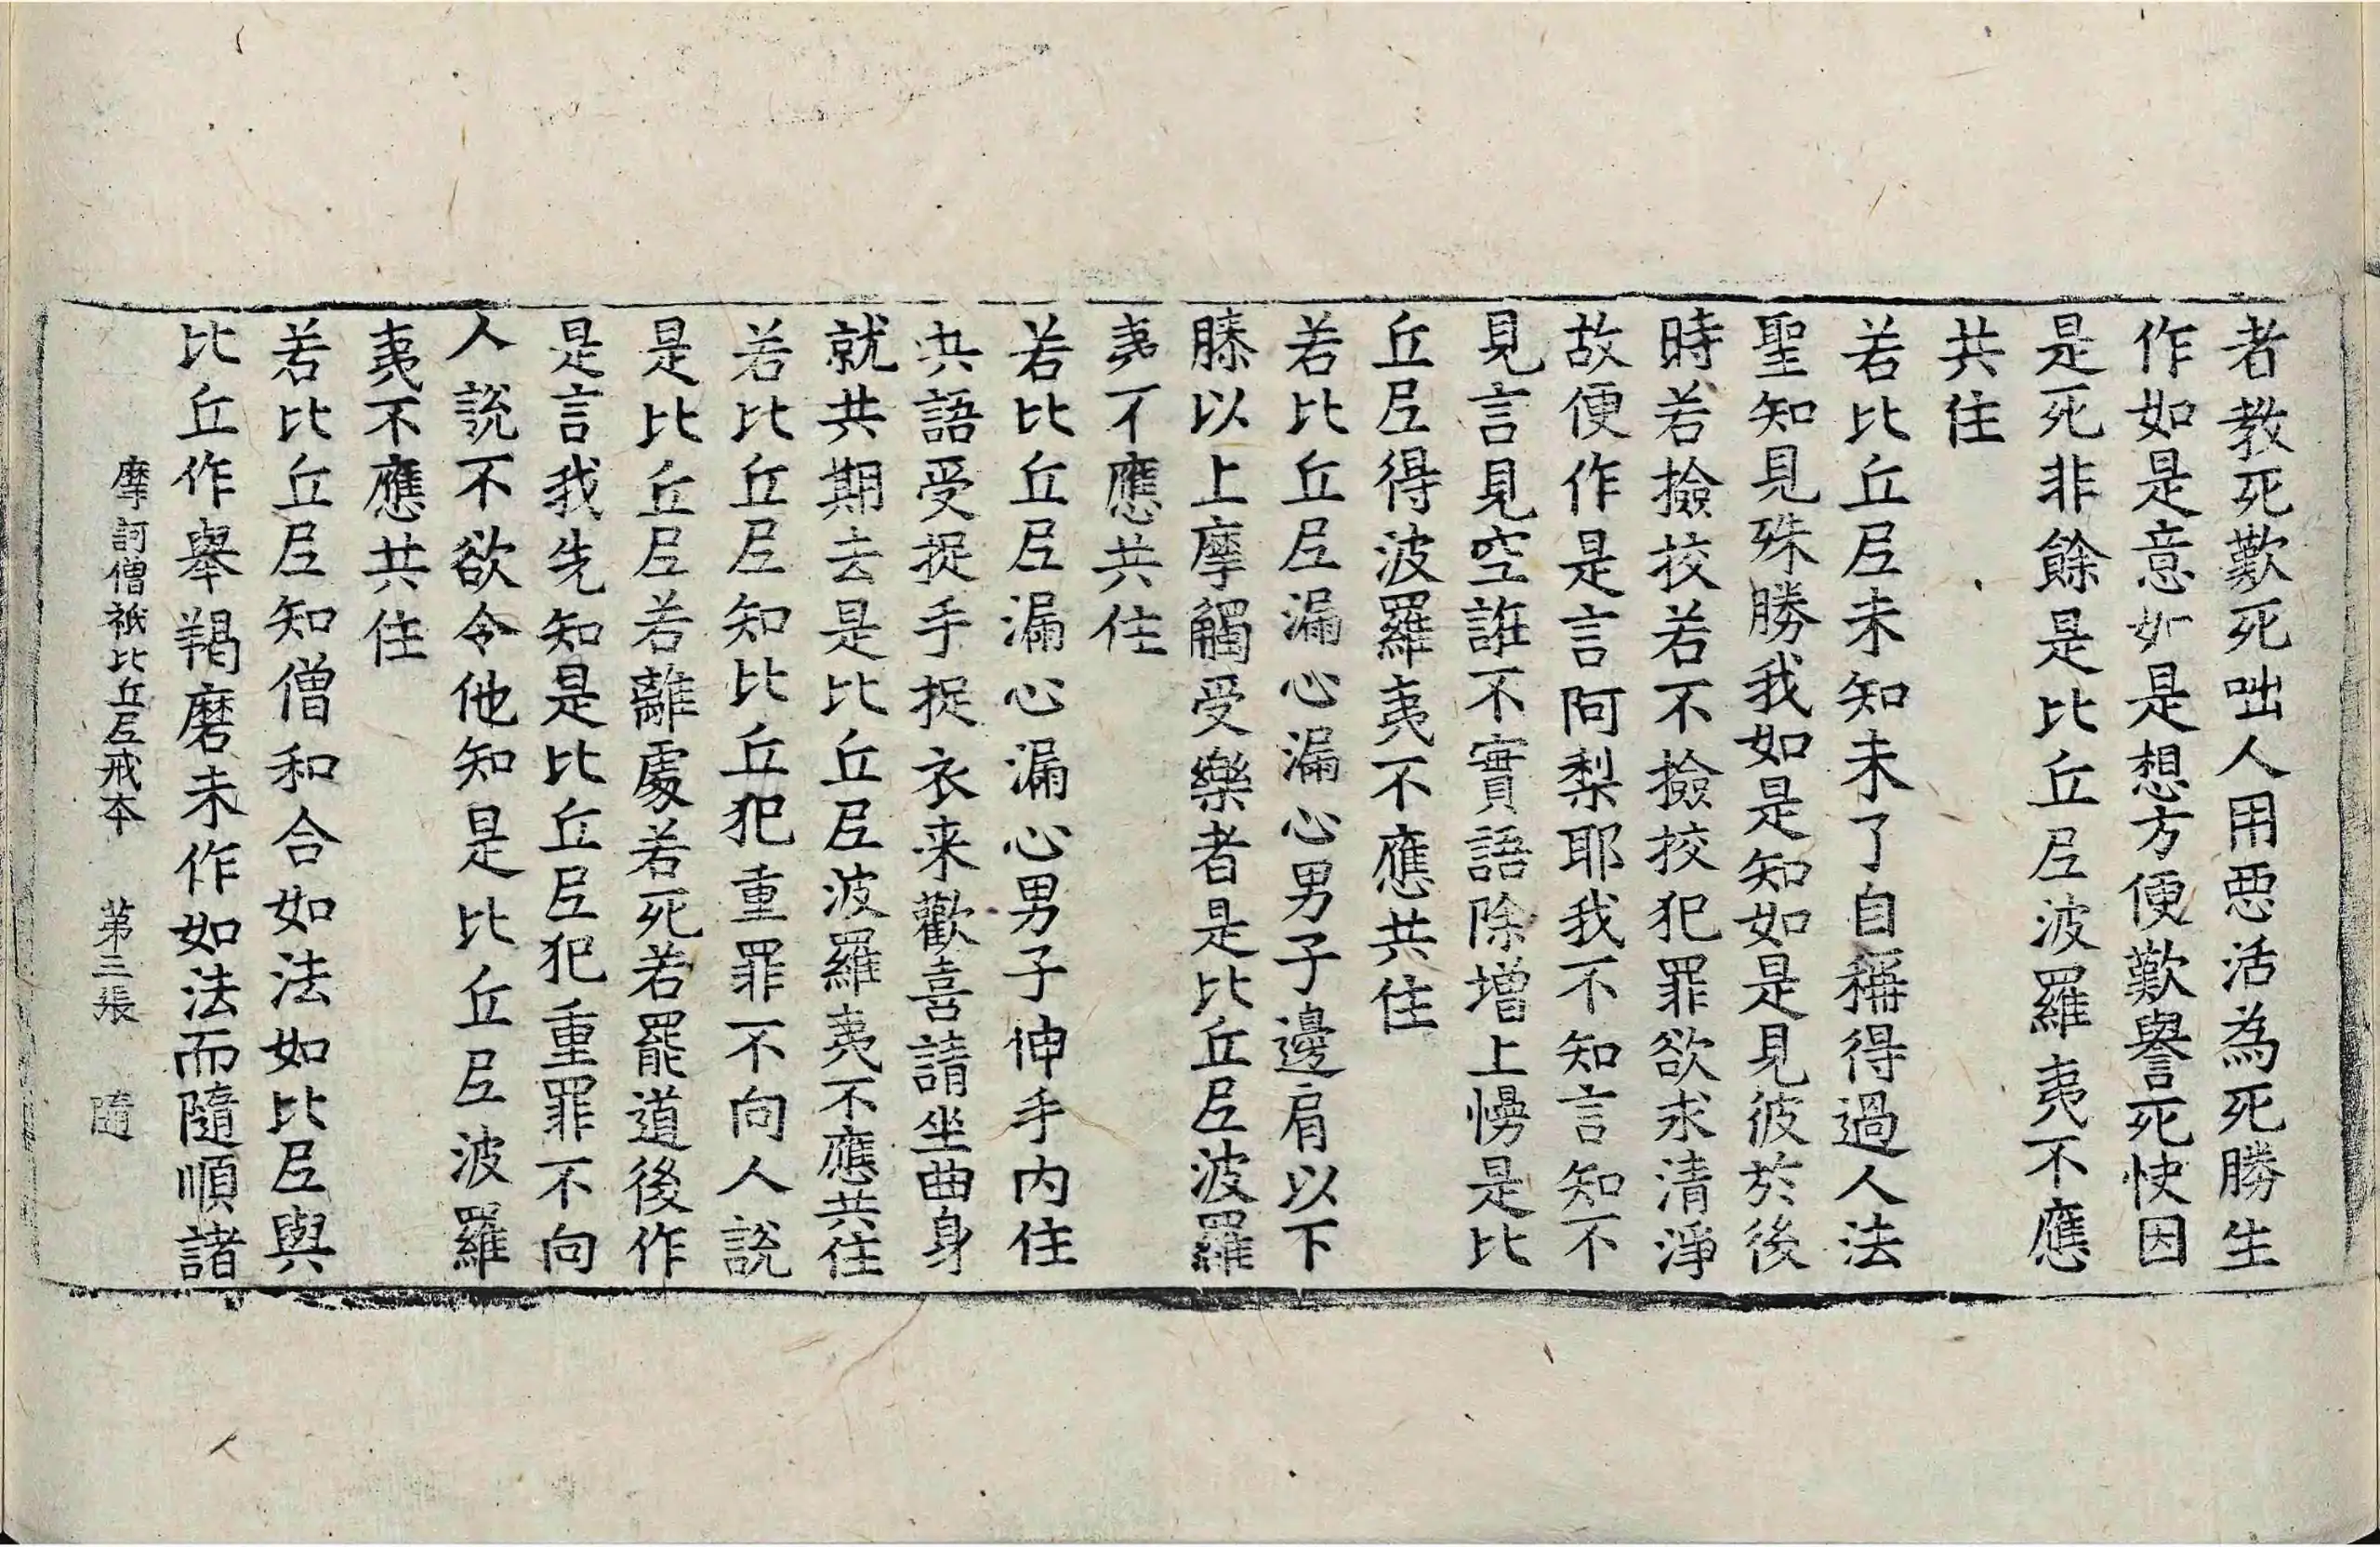 者教死歎死咄人用惡活為死勝生
作如是意如是想方便歎譽死快因
是死非餘是比丘尼波羅夷不應
共住
若比丘尼未知未了自稱得過人法
聖知見殊勝我如是知如是見彼於後
時若撿挍若不撿挍犯罪欲求清淨
故便作是言阿梨耶我不知言知不
見言見空誑不實語除增上慢是比
丘尼得波羅夷不應共住
若比丘尼漏心漏心男子邊肩以下
膝以上摩觸受樂者是比丘尼波羅
夷不應共住
若比丘尼漏心漏心男子伸手內住
共語受捉手捉衣来歡喜請坐曲身
就共期去是比丘尼波羅夷不應共住
若比丘尼知比丘犯重罪不向人說
是比丘尼若離處若死若罷道後作
是言我先知是比丘尼犯重罪不向
人說不欲令他知是比丘尼波羅
夷不應共住
若比丘尼知僧和合如法如比尼與
比丘作舉羯磨未作如法而隨順諸
摩訶僧祇比丘尼戒本 第三張 隨